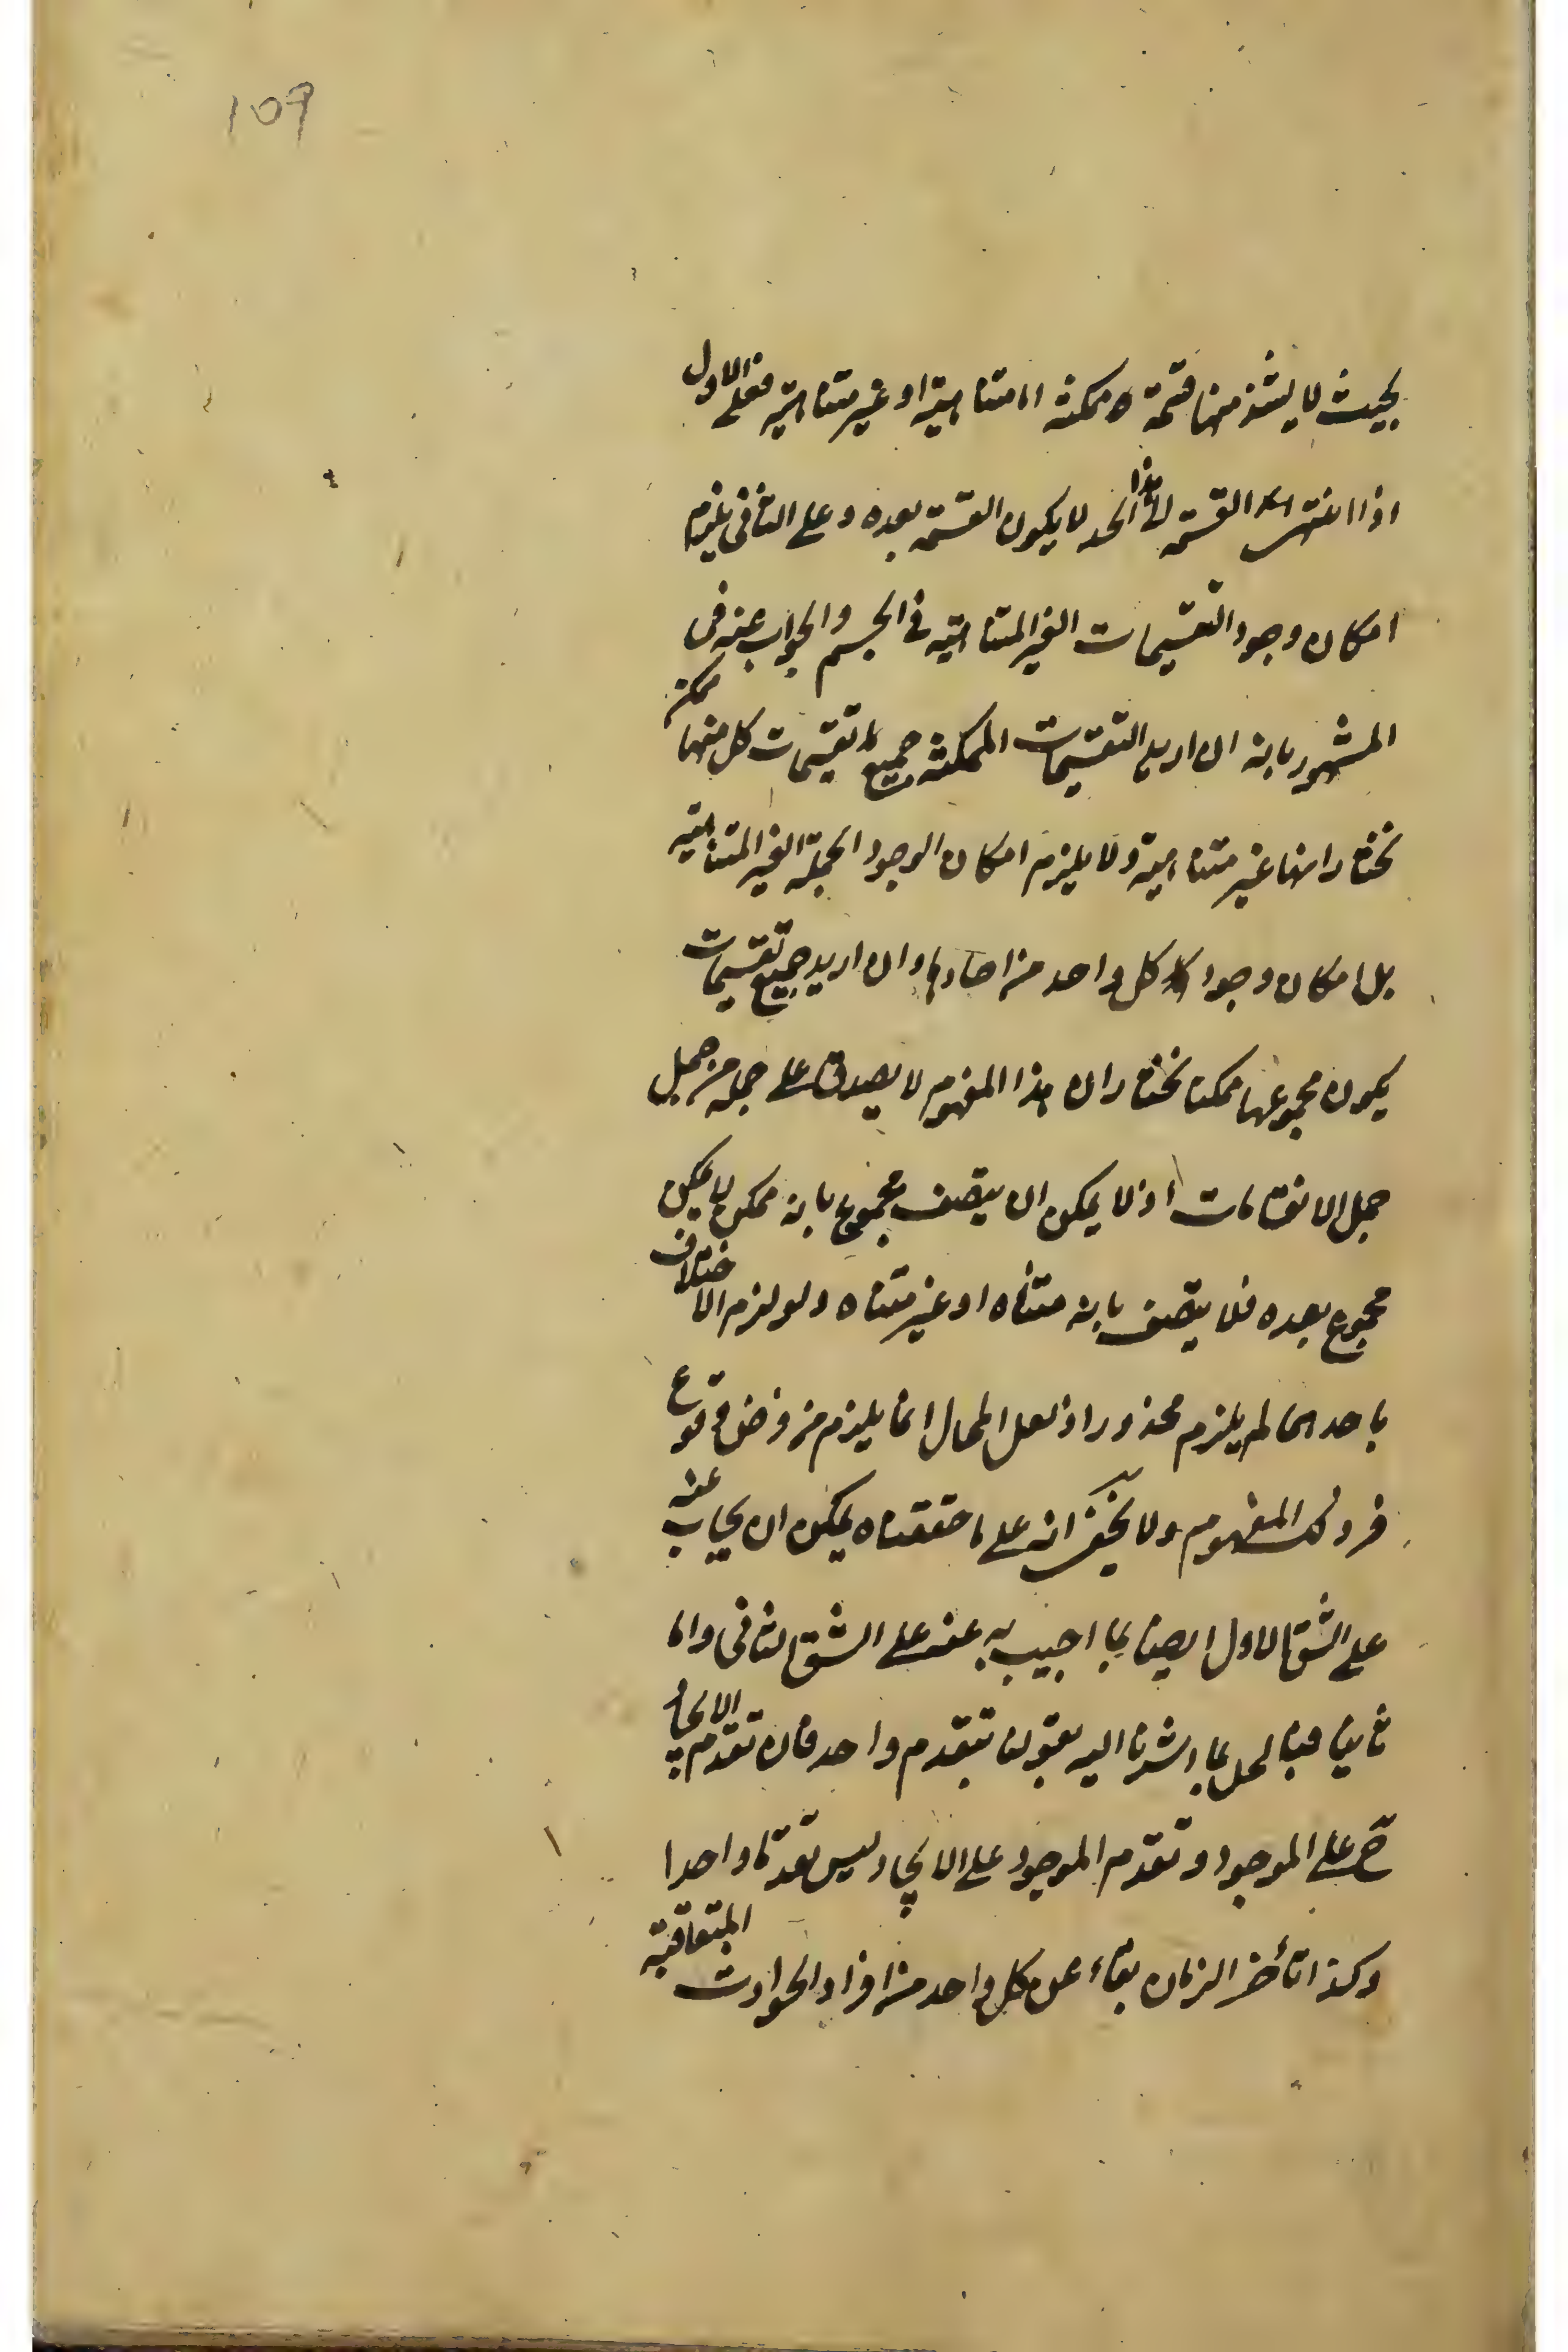 109
بحيث لا يشذ منها قسمة ممكنة اما متناهية او غير متناهية فعلى الاول
اذا انتهى القسمة الى هذا الحد لا يكون القسمة بعده وعلى الثانى يلزم
امكان وجود التقسيمات الغير المتناهية فى الجسم والجواب عنه فى
المشهور بانه ان اريد التقسيمات الممكنة جميع تقسيمات كل منها ممكن
نختار انها غير متناهية ولا يلزم امكان الوجود الجملة الغير المتناهية
بل امكان وجود كل واحد من احادها وان اريد جميع تقسيمات
يكون مجموعها ممكنا نختار ان هذا المفهوم لا يصدق على جملة من جمل
جمل الانقسامات اذ لا يمكن ان يتصف مجموع بانه ممكن لا يمكن
مجموع بعده فلا يتصف بانه متناه او غير متناه ولو لزم الاختلاف
باحدهما لم يلزم محذور اذ لعل المحال انما يلزم من فرض وقوع
فرد لذلك المفهوم ولا يخفى انه على ما حققناه يمكن ان يجاب عنه
على الشق الاول ايضا بما اجيب به عنه على الشق الثانى واما
ثانيا فبالحل بما اشرنا اليه بقولنا بتقدم واحد فان تقدم الايجاب
ح على الموجود وتقدم الموجود على الايجاد ليس تقدما واحدا
وكذا تأخر الزمان بقاء عن كل واحد من افراد الحوادث المتعاقبة